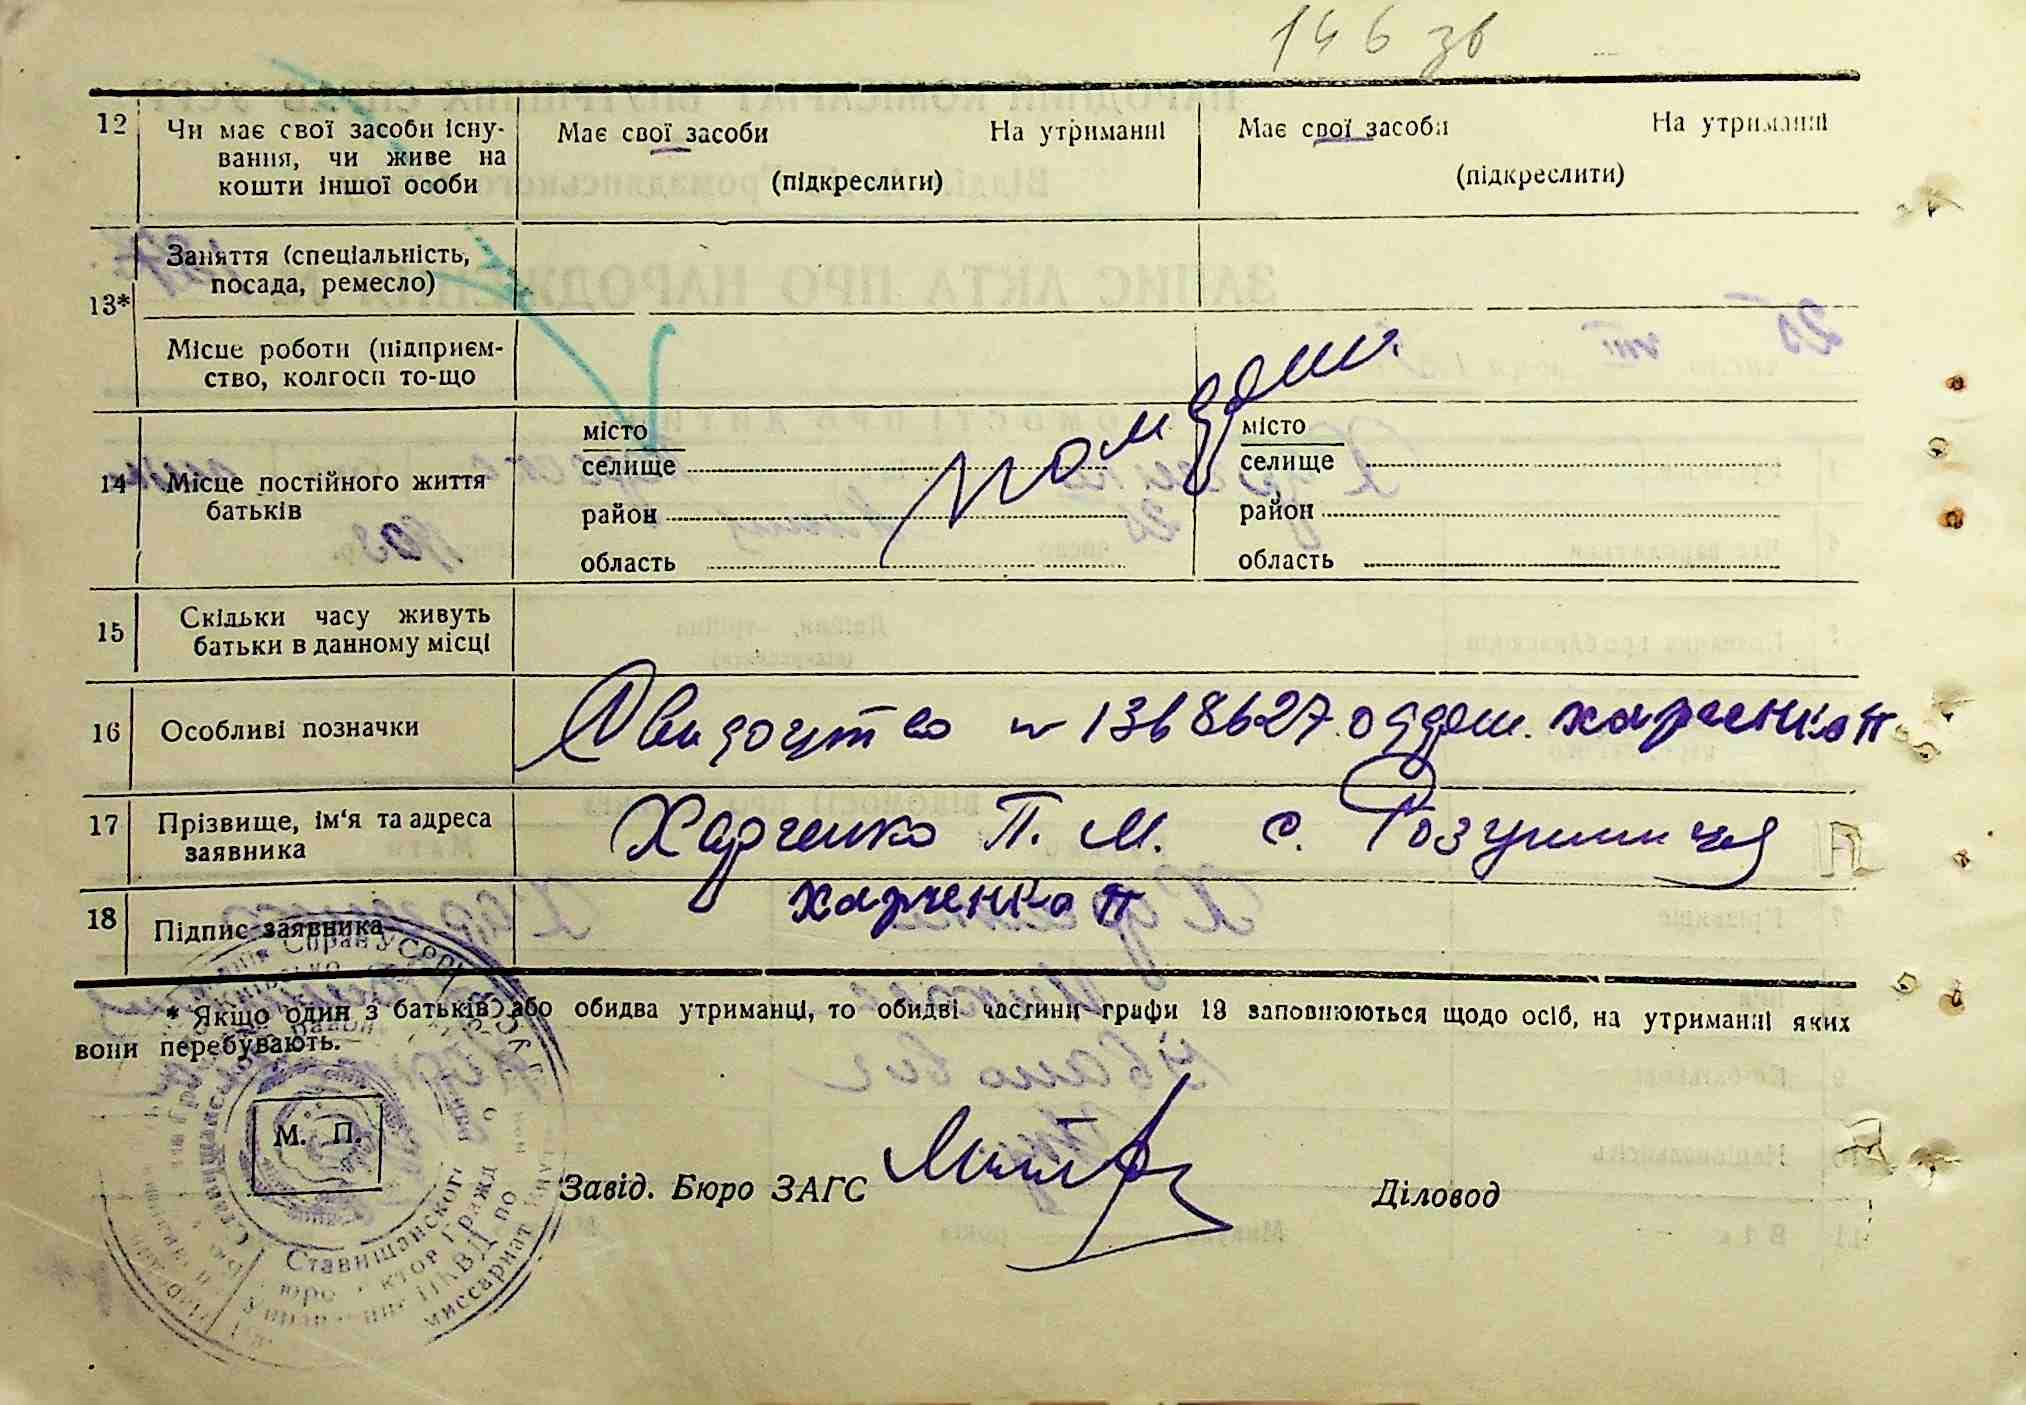 146 зв
12 Чи має свої засоби існу- Має свої засоби На утриманні Має свої засоби На утриманні
вання, чи живе на
кошти іншої особи (підкреслити) (підкреслити)
Заняття (спеціальність,
посада, ремесло)
13*
Місце роботи (підприєм-
ство, колгосп то-що
місто місто
селище селище
14 Місце постійного життя
батьків
район район
область область
15 Скільки часу живуть
батьки в данному місці
16 Особливі позначки Свидоцтво № 1368627 Харченко п
17 Прізвище, ім'я та адреса Харченко П. М. с. Розумниця
заявника
18 Підпис заявника харченко п
* Якщо один з батьків або обидва утриманці, то обидві частини графи 13 заповнюються щодо осіб, на утриманні яких
вони перебувають.
М. П.
Завід. Бюро ЗАГС Діловод
Ставищанского